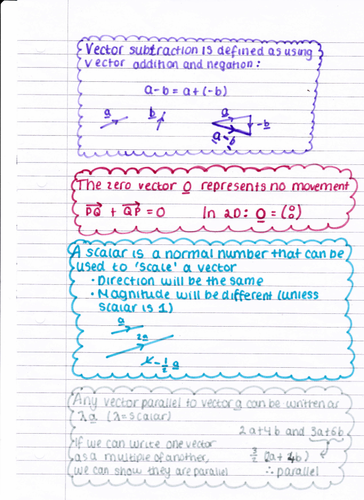 Vector subtraction is defined as using
vector addition and negation:
a-b = a+(-b)
a
b
a
-b
a-b
The zero vector 0 represents no movement
PQ + QP = 0 In 2D: 0 = (0 0)
A scalar is a normal number that can be
used to 'scale' a vector
• Direction will be the same
• Magnitude will be different (unless
scalar is 1)
a
2a
-½a
Any vector parallel to vector a can be written as
λa (λ=scalar)
2a+4b and 3a+6b
If we can write one vector
as a multiple of another,
3/2 (2a + 4b)
we can show they are parallel
∴ parallel